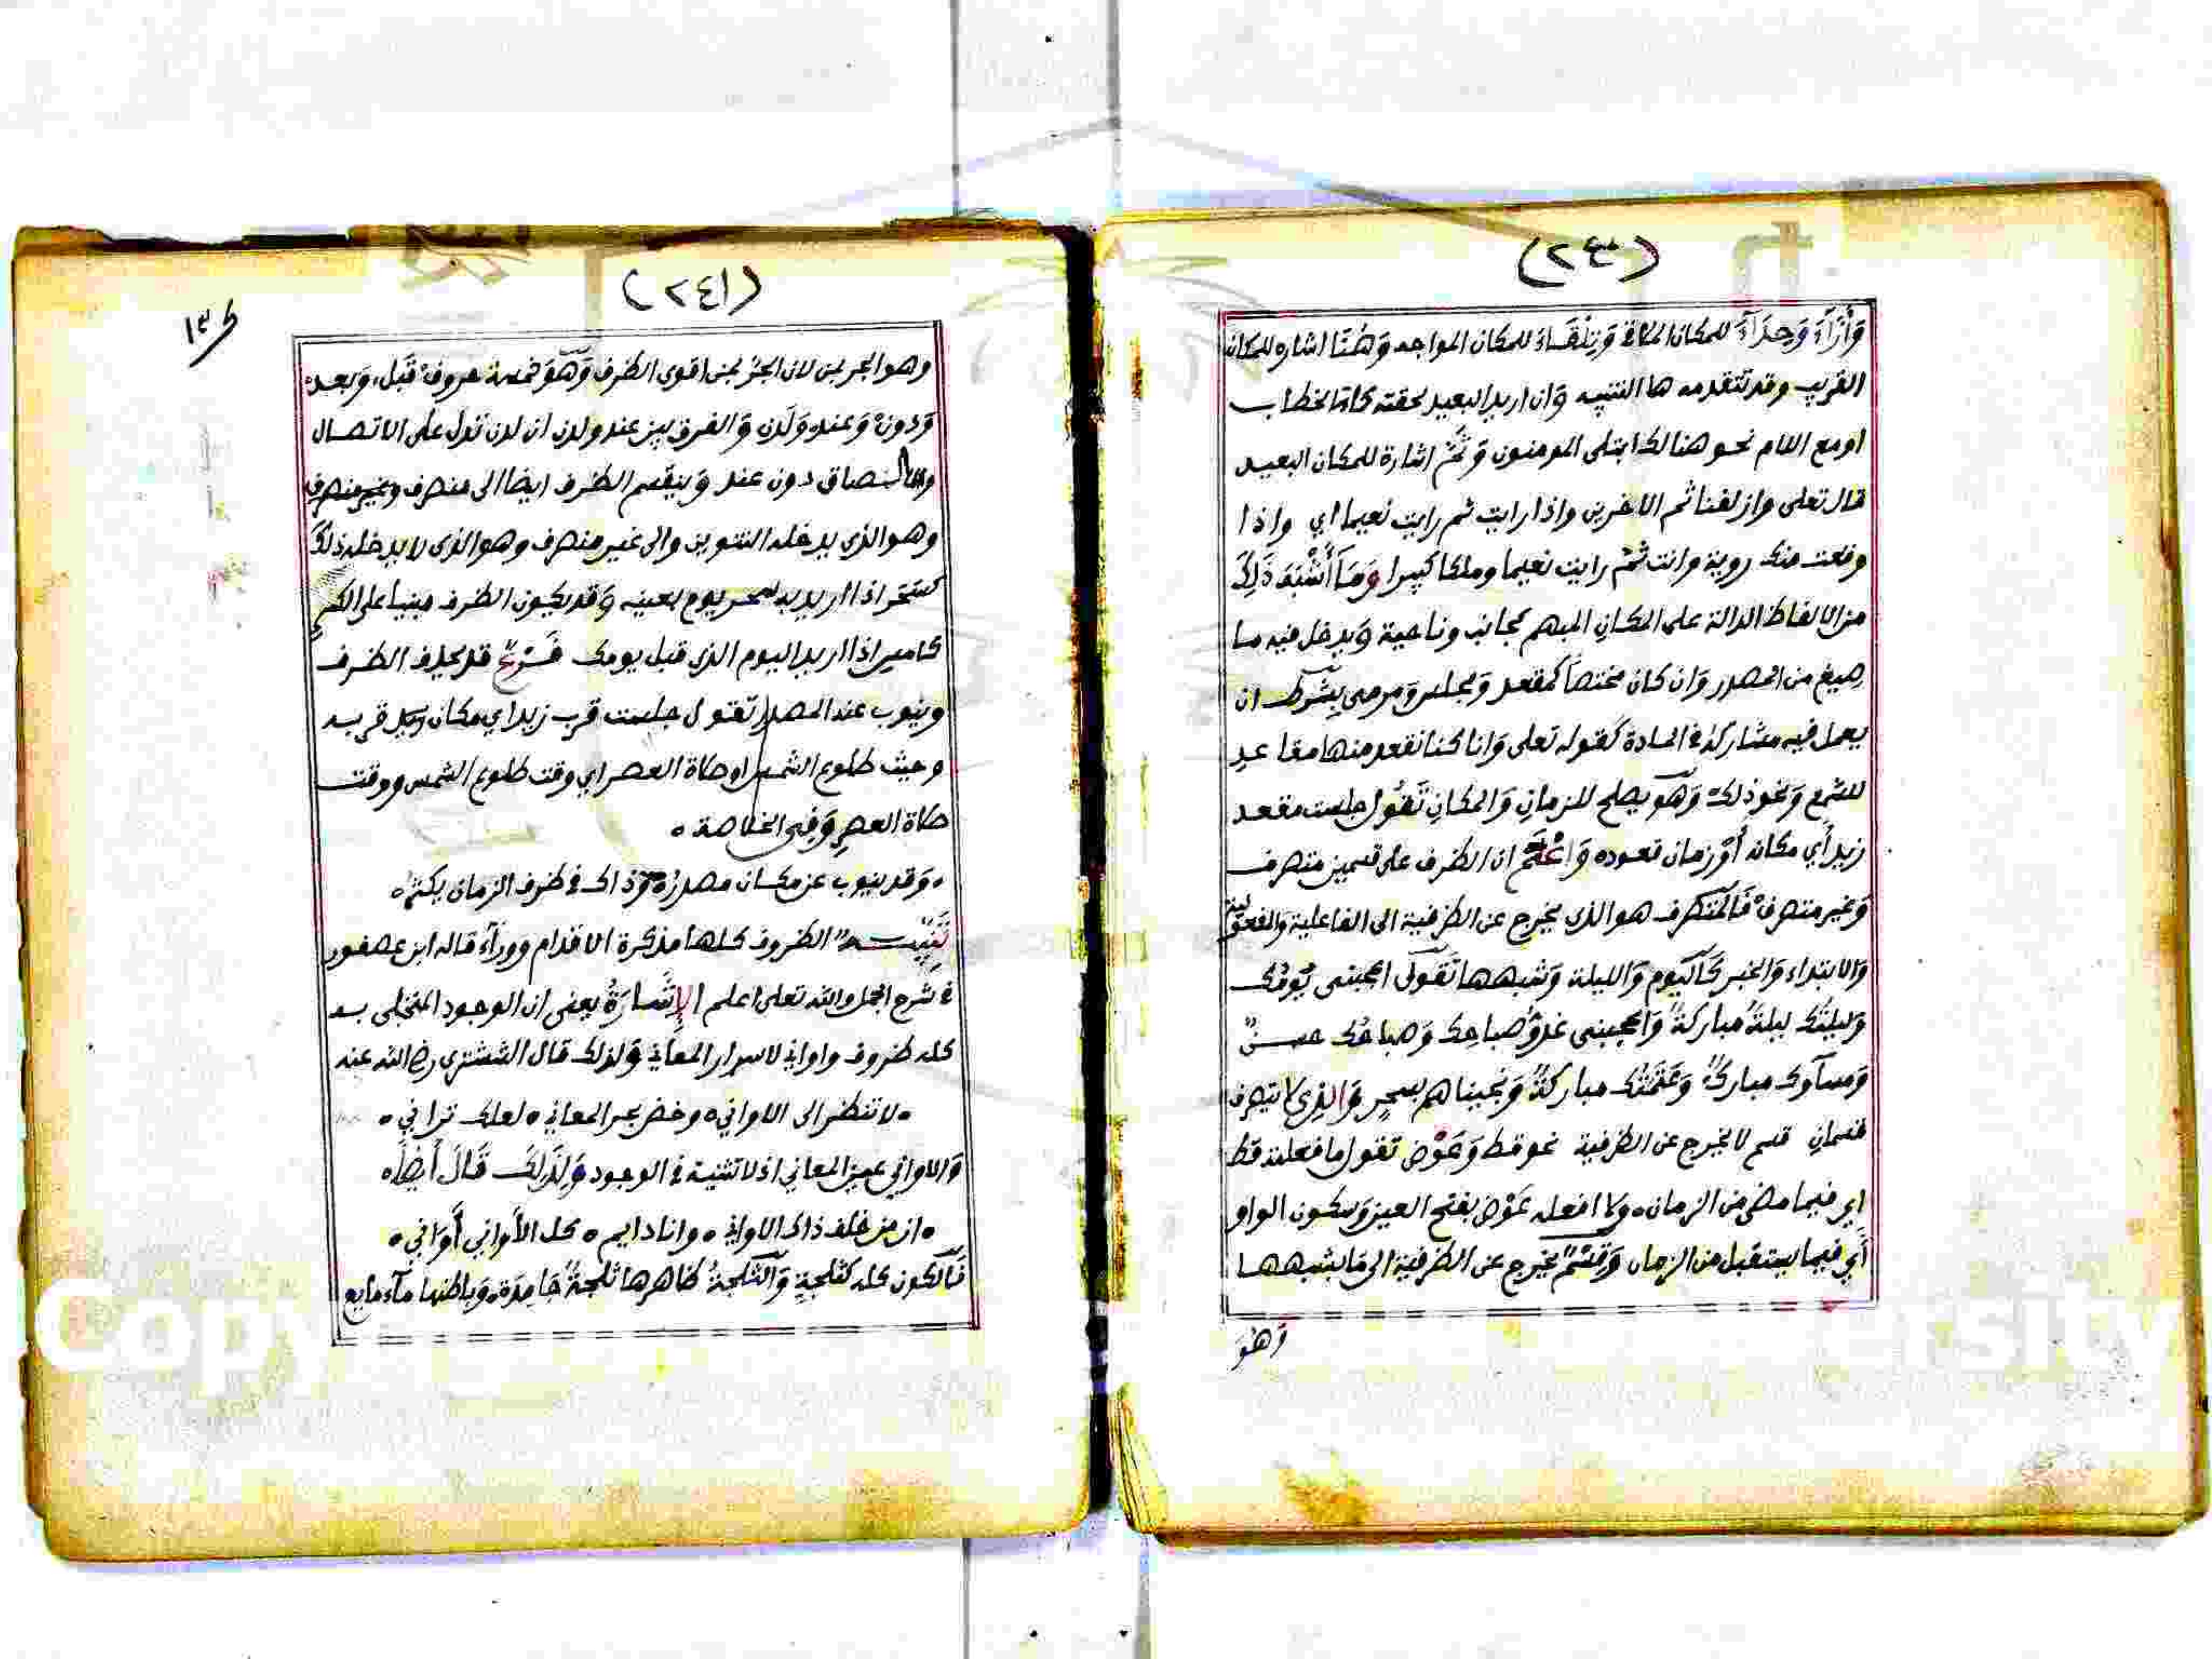 (٢٤٠)
وَأَزَآءَ وَحِذَآءَ للمكان المحاذي وَتِلْقَاءَ للمكان المواجه وَهُنَا اشاره للمكان
القريب وقد تتقدمه ها التنبيه وَان اريد البعيد لحقته كاف الخطاب
او مع اللام نحو هنالك ابتلى المومنون وَثَمَّ اشارة للمكان البعيد
قال تعلى وازلفنا ثم الاخرين واذا رايت ثم رايت نعيما اي واذا
وقعت منك روية وانت ثَمَّ رايت نعيما وملكا كبيرا وَمَا أَشْبَهَ ذَلِكَ
من الالفاظ الدالة على المكان المبهم كجانب وناحية وَيدخل فيه ما
صِيغ من المصدر وَان كان مختصا كمقعد وَمجلس وَمرمى بشرط ان
يعمل فيه مشاركه في المادة كقوله تعلى وَانا كنا نقعد منها مقاعد
للسمع وَنحو ذلك وَهُوَ يصلح للزمانِ وَالمكانِ تَقُول جلست مقعد
زيد أي مكانه أَوْ زمان قعوده وَاعْلَمْ ان الظرف على قسمين متصرف
وَغير متصرف فَالمتصرف هو الذي يخرج عن الظرفية الى الفاعلية والمفعولية
وَالابتداء وَالخبر كَاليَوم وَالليلة وَشبهها تَقول اعجبني يَومُك
وَليلتُك ليلةٌ مباركةٌ وَاعجبني غدوّ صباحك وَصباحُك حسنٌ
وَمسآوك مباركٌ وَعَتَمَتُك مباركةٌ وَنجيناهم بسحرٍ وَالذِي لا يتصرف
قسمانِ قسم لا يخرج عن الظرفية نحو قط وَعَوْض تقول ما فعلته قط
اي فيما مضى من الزمان ، ولا افعله عَوْض بفتح العين وَسكون الواو
أَي فيما يستقبل من الزمان وَقِسْمٌ يخرج عن الظرفية الى مَا يشبهها
وَهُوَ
(٢٤١)
وهو الجر بمن لان الجرّ بمن اقوى الظرف وَهُوَ خمسة حروف قَبل، وَبعد،
وَدونْ وَعنده وَلَدن وَالفرق بين عند ولدن ان لدن تدل على الاتصال
والالتصاق دون عند وَينقسم الظرف ايضا الى منصرف وغير منصرف
وهو الذي يدخله التنوين والى غير منصرف وهو الذي لا يدخله ذلك
كسَحَر اذا اريد به سحر يوم بعينه وَقد يكون الظرف مبنيا على الكسر
كامس اذا اريد اليوم الذي قبل يومك فَرْعٌ قد يحذف الظرف
وينوب عنه المصدر تقول جلست قرب زيد اي مكان قربه
وحيث طلوع الشمس او صلاة العصر اي وقت طلوع الشمس ووقت
صلاة العصرِ وَفي الخلاصة ،
، وَقد ينوب عن مكان مصدرُ ، وَذاك في ظرف الزمان يكثر ،
تَنْبِيْهٌ الظروف كلها مذكرة الا قدام ووراَء قاله ابن عصفور
في شرح الجمل والله تعلى اعلم الإِشَارَةُ يعني ان الوجود المتجلى به
كله ظروف واواني لاسرار المعاني وَلذلك قال الششتري رضي الله عنه
، لا تنظر الى الاواني ، وخض بحر المعاني ، لعلك تراني ،
وَالاواني عين المعاني اذ لا تثنية في الوجود وَلِذَلِكَ قَالَ أَيْضاً ،
، ان من خلف ذاك الاواني ، وانا دايم ، كل الأَواني أَوَاني ،
فَالكون كله كثلجةٍ وَالثلجةُ ظاهرها ثلجةٌ جَامِدَة، وَباطنها مآء مايع